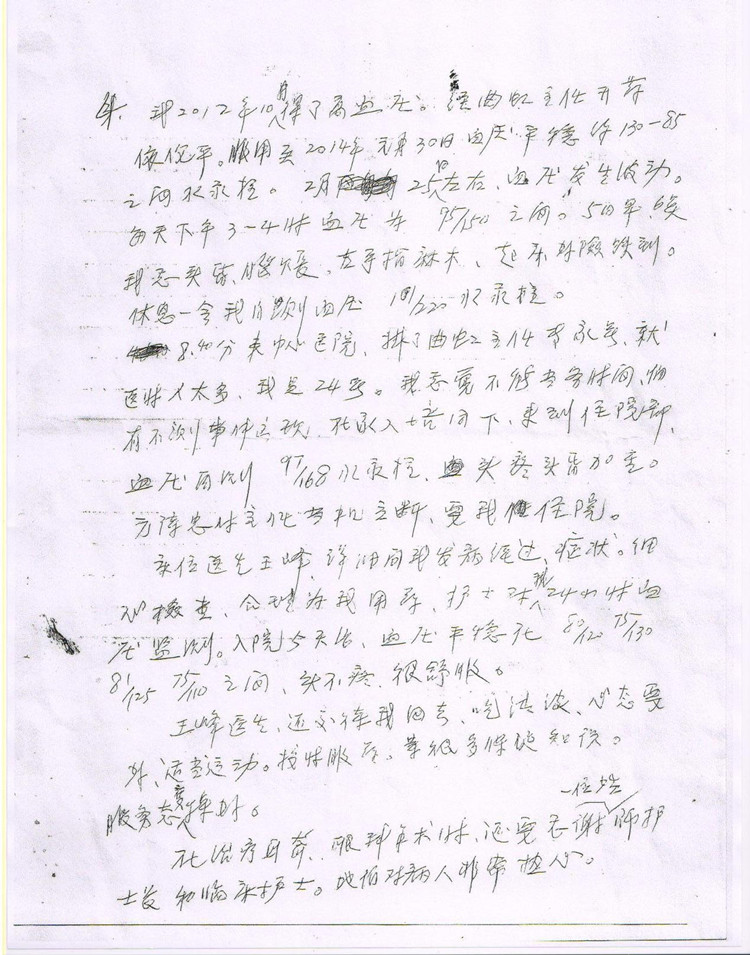 我2012年10月得了高血压。经曲虹主任开药
依伦平。服用至2014年元月30日血压平稳在130-85
之间水汞柱。2月25日左右、血压发生波动。
每天下午3-4时血压为 95/150 之间。5日早
我感头昏、左手指麻木、起床时
休息一会我自测血压 101/220 水汞柱。
8.40分来中心医院、挂了曲虹主任专家号、就
医时人太多、我是24号。我感觉不能等多时间、怕
有不测事件之现、在家人陪同下、来到住院部、
血压再测 97/168 水汞柱、头疼头昏加重。
主任当机立断、要我住院。
床位医生王峰、详细问我发病经过、症状。细
心检查、合理为我用药、护士对我24小时血
压监测。入院5天后、血压平稳在 80/120 75/130
81/125 75/110 之间、头不疼、很舒服。
王峰医生、还交待我回去、吃清淡、心态要
好、适当运动。按时服药。等很多保健知识。
服务态度特好。
在治疗耳聋、眼球手术时、还要感谢一位 护
士长和临床护士。她们对病人非常热心。